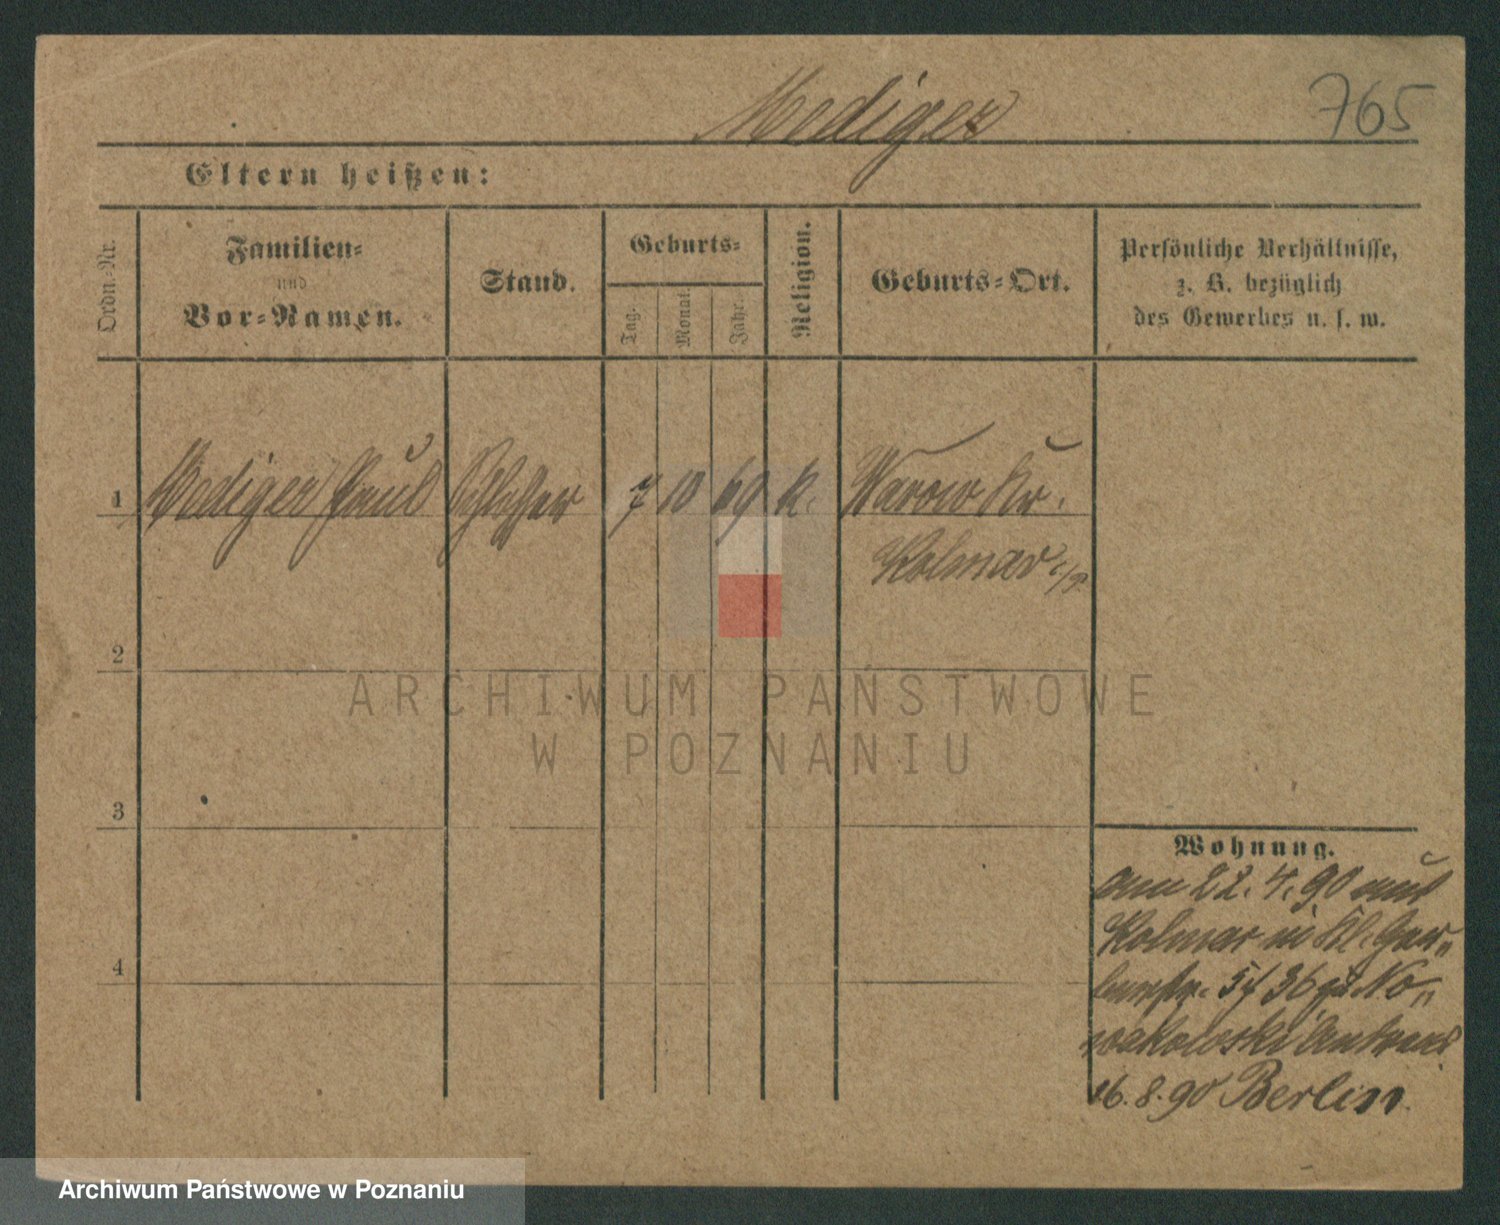 Mediger
765
Eltern heißen:
Ordn.-Nr.
Familien-
und
Vor-Namen.
Stand.
Geburts-
Tag.
Monat.
Jahr.
Religion.
Geburts-Ort.
Persönliche Verhältnisse,
z. B. bezüglich
des Gewerbes u. s. w.
1 Mediger Paul Schlosser 7 10 69 k. Warow Kr.
Kolmar i/P.
2
ARCHIWUM PAŃSTWOWE
W POZNANIU
3
Wohnung.
am 22. 4. 90 aus
Kolmar in Kl. Ger-
berstr. 5/ 36 No-
wakowski
4
16. 8. 90 Berlin.
Archiwum Państwowe w Poznaniu